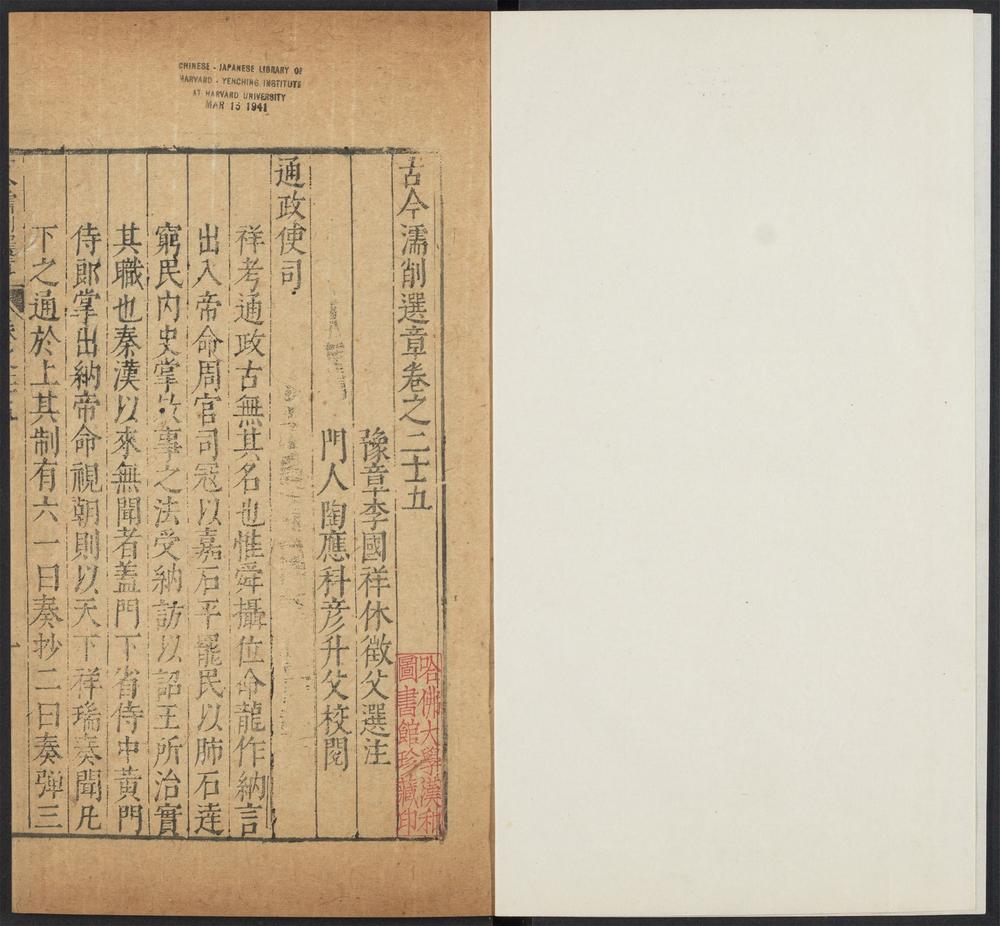 CHINESE - JAPANESE LIBRARY OF
HARVARD - YENCHING INSTITUTE
AT HARVARD UNIVERSITY
MAR 15 1941
古今濡削選章卷之二十五
豫章李國祥休徵父選注
門人陶應科彦升父校閱
通政使司
祥考通政古無其名也惟舜攝位命龍作納言
出入帝命周官司冦以嘉石平罷民以肺石逹
窮民内史掌敘事之法受納訪以詔王所治實
其職也秦漢以來無聞者蓋門下省侍中黃門
侍郎掌出納帝命視朝則以天下祥瑞奏聞凡
下之通於上其制有六一曰奏抄二曰奏彈三
哈佛大學漢和
圖書館珍藏印